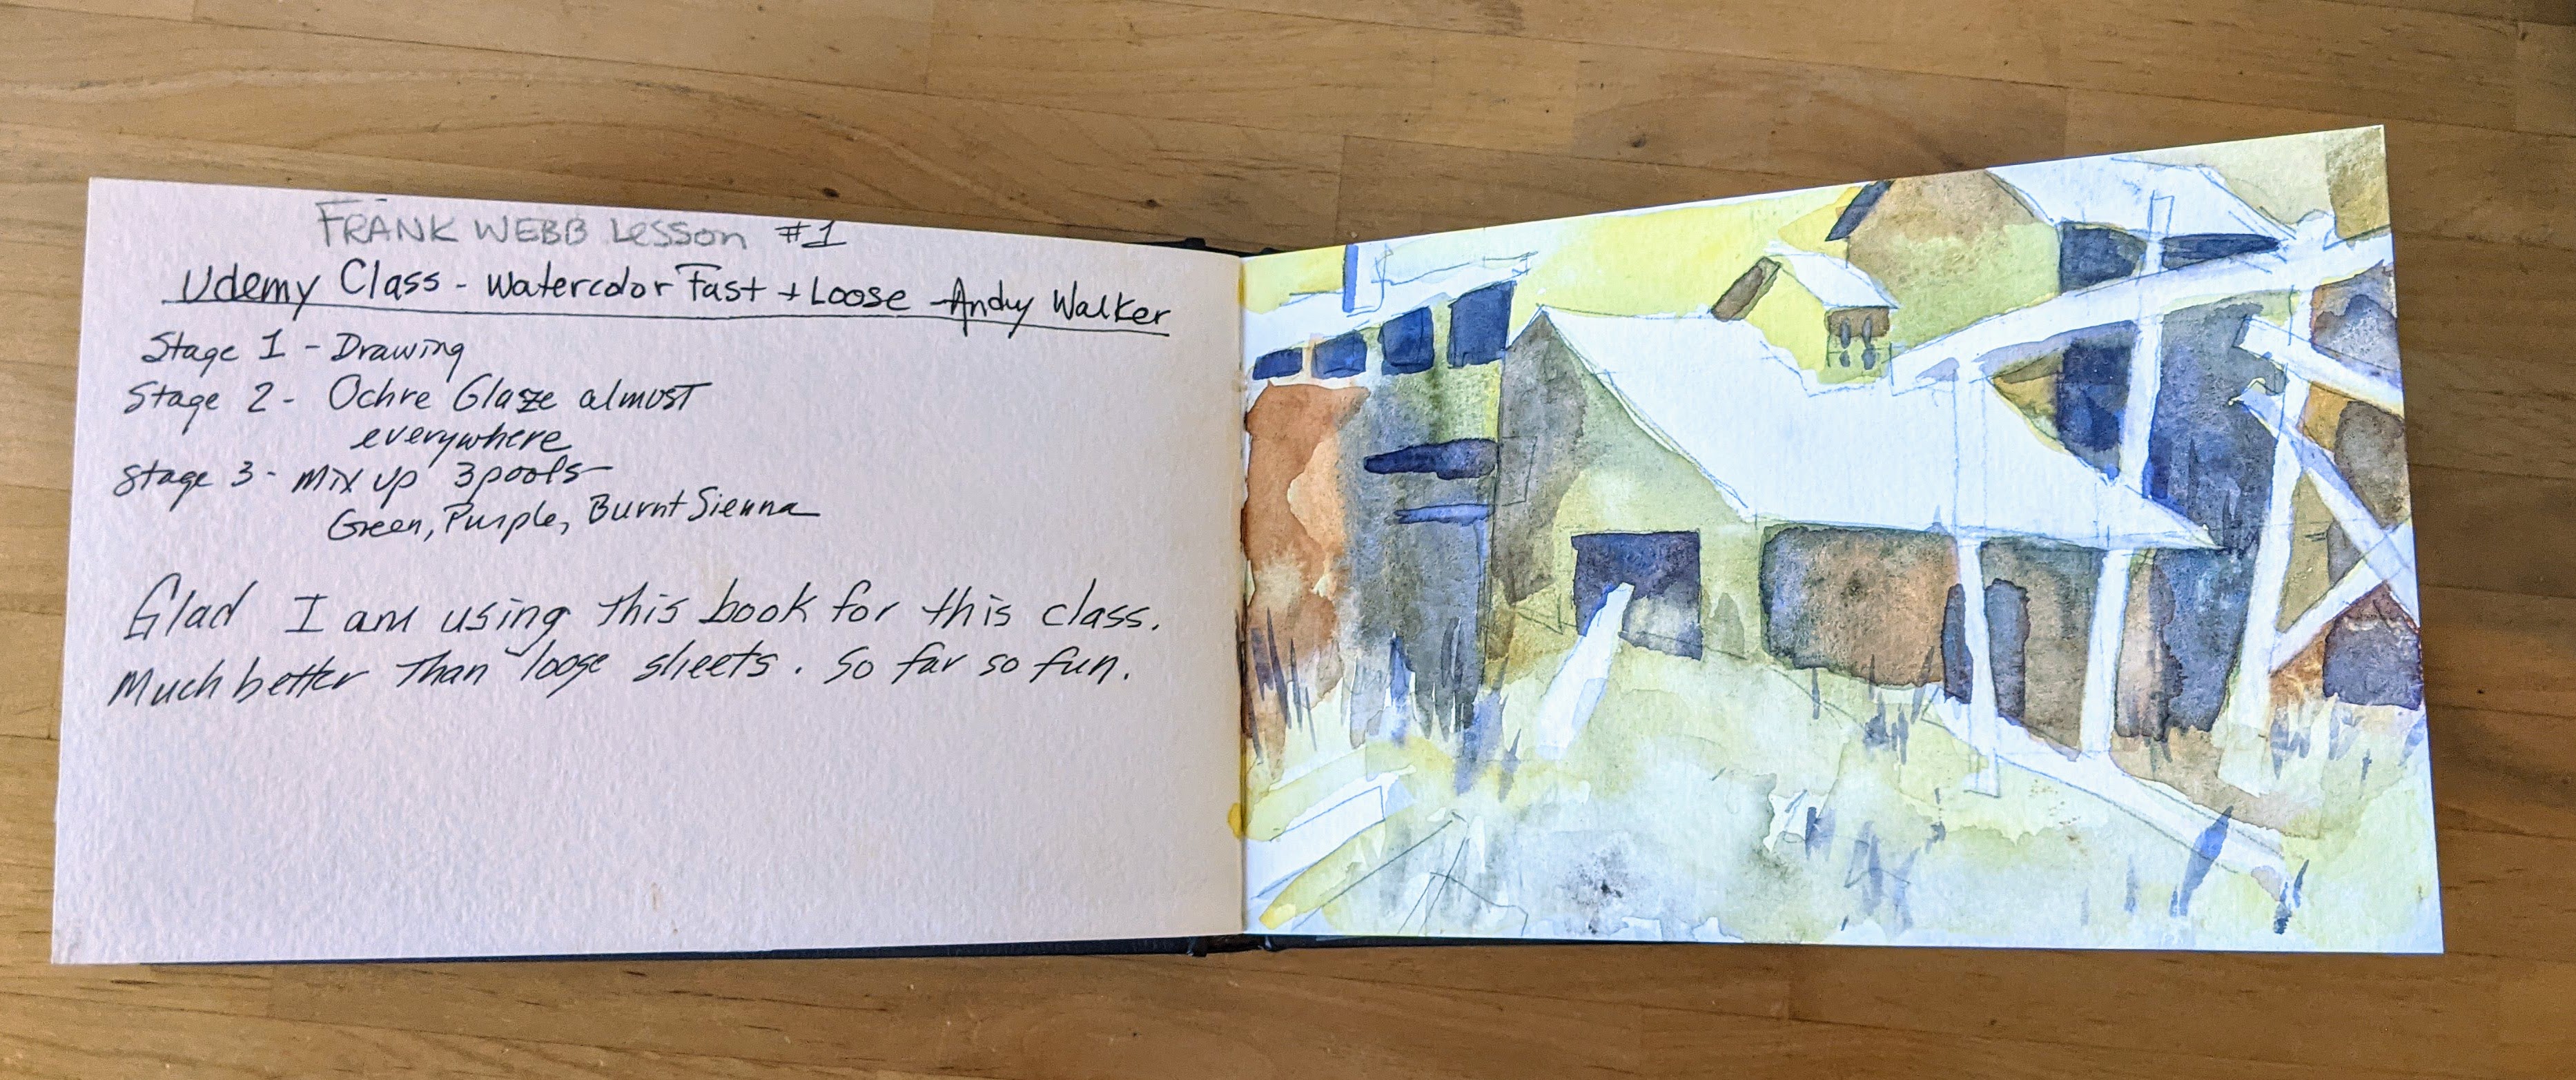 FRANK WEBB Lesson #1
Udemy Class - Watercolor Fast + Loose - Andy Walker
Stage 1 - Drawing
Stage 2 - Ochre Glaze almost
everywhere
Stage 3 - Mix up 3 pools
Green, Purple, Burnt Sienna
Glad I am using this book for this class.
Much better than loose sheets. So far so fun.